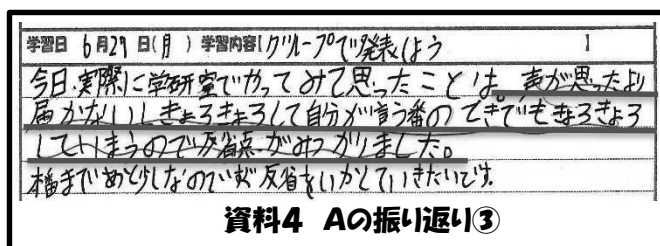 学習日 6月29日(月) 学習内容【グループで発表しよう 】
今日実際に学研室でやってみて思ったことは、声が思ったより
届かないしきょろきょろして自分が言う番のときでもきょろきょろ
してしまうので反省点がみつかりました。
本番まであと少しなのでまず反省をいかしていきたいです。
資料4 Aの振り返り③